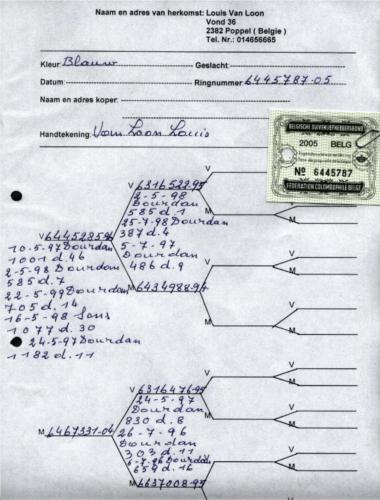 Naam en adres van herkomst: Louis Van Loon
Vond 36
2382 Poppel ( Belgie )
Tel. Nr.: 014656665
Kleur Blauw Geslacht:
Datum: Ringnummer: 6445787-05
Naam en adres koper:
Handtekening: Van Loon Louis
BELGISCHE DUIVENLIEFHEBBERSBOND
2005 BELG
Nº 6445787
FEDERATION COLOMBOPHILE BELGE
V 6316522-95
2-5-98
Dourdan
585 d.1
25-7-98 Dourdan
387 d.4
5-7-97
Dourdan
486 d.9
V
M
V
M
V
M
V 6445285-96
10-5-97 Dourdan
1001 d.46
2-5-98 Dourdan
585 d.7
22-5-99 Dourdan
705 d.14
16-5-98 Sens
1077 d.30
24-5-97 Dourdan
1182 d.11
M
V
M
V
M
V 6316476-95
24-5-97
Dourdan
830 d.8
26-7-96
Dourdan
303 d.11
Dourdan
659 d.16
V
M
V
M
M 6467331-04
M 6637008-95
V
M
V